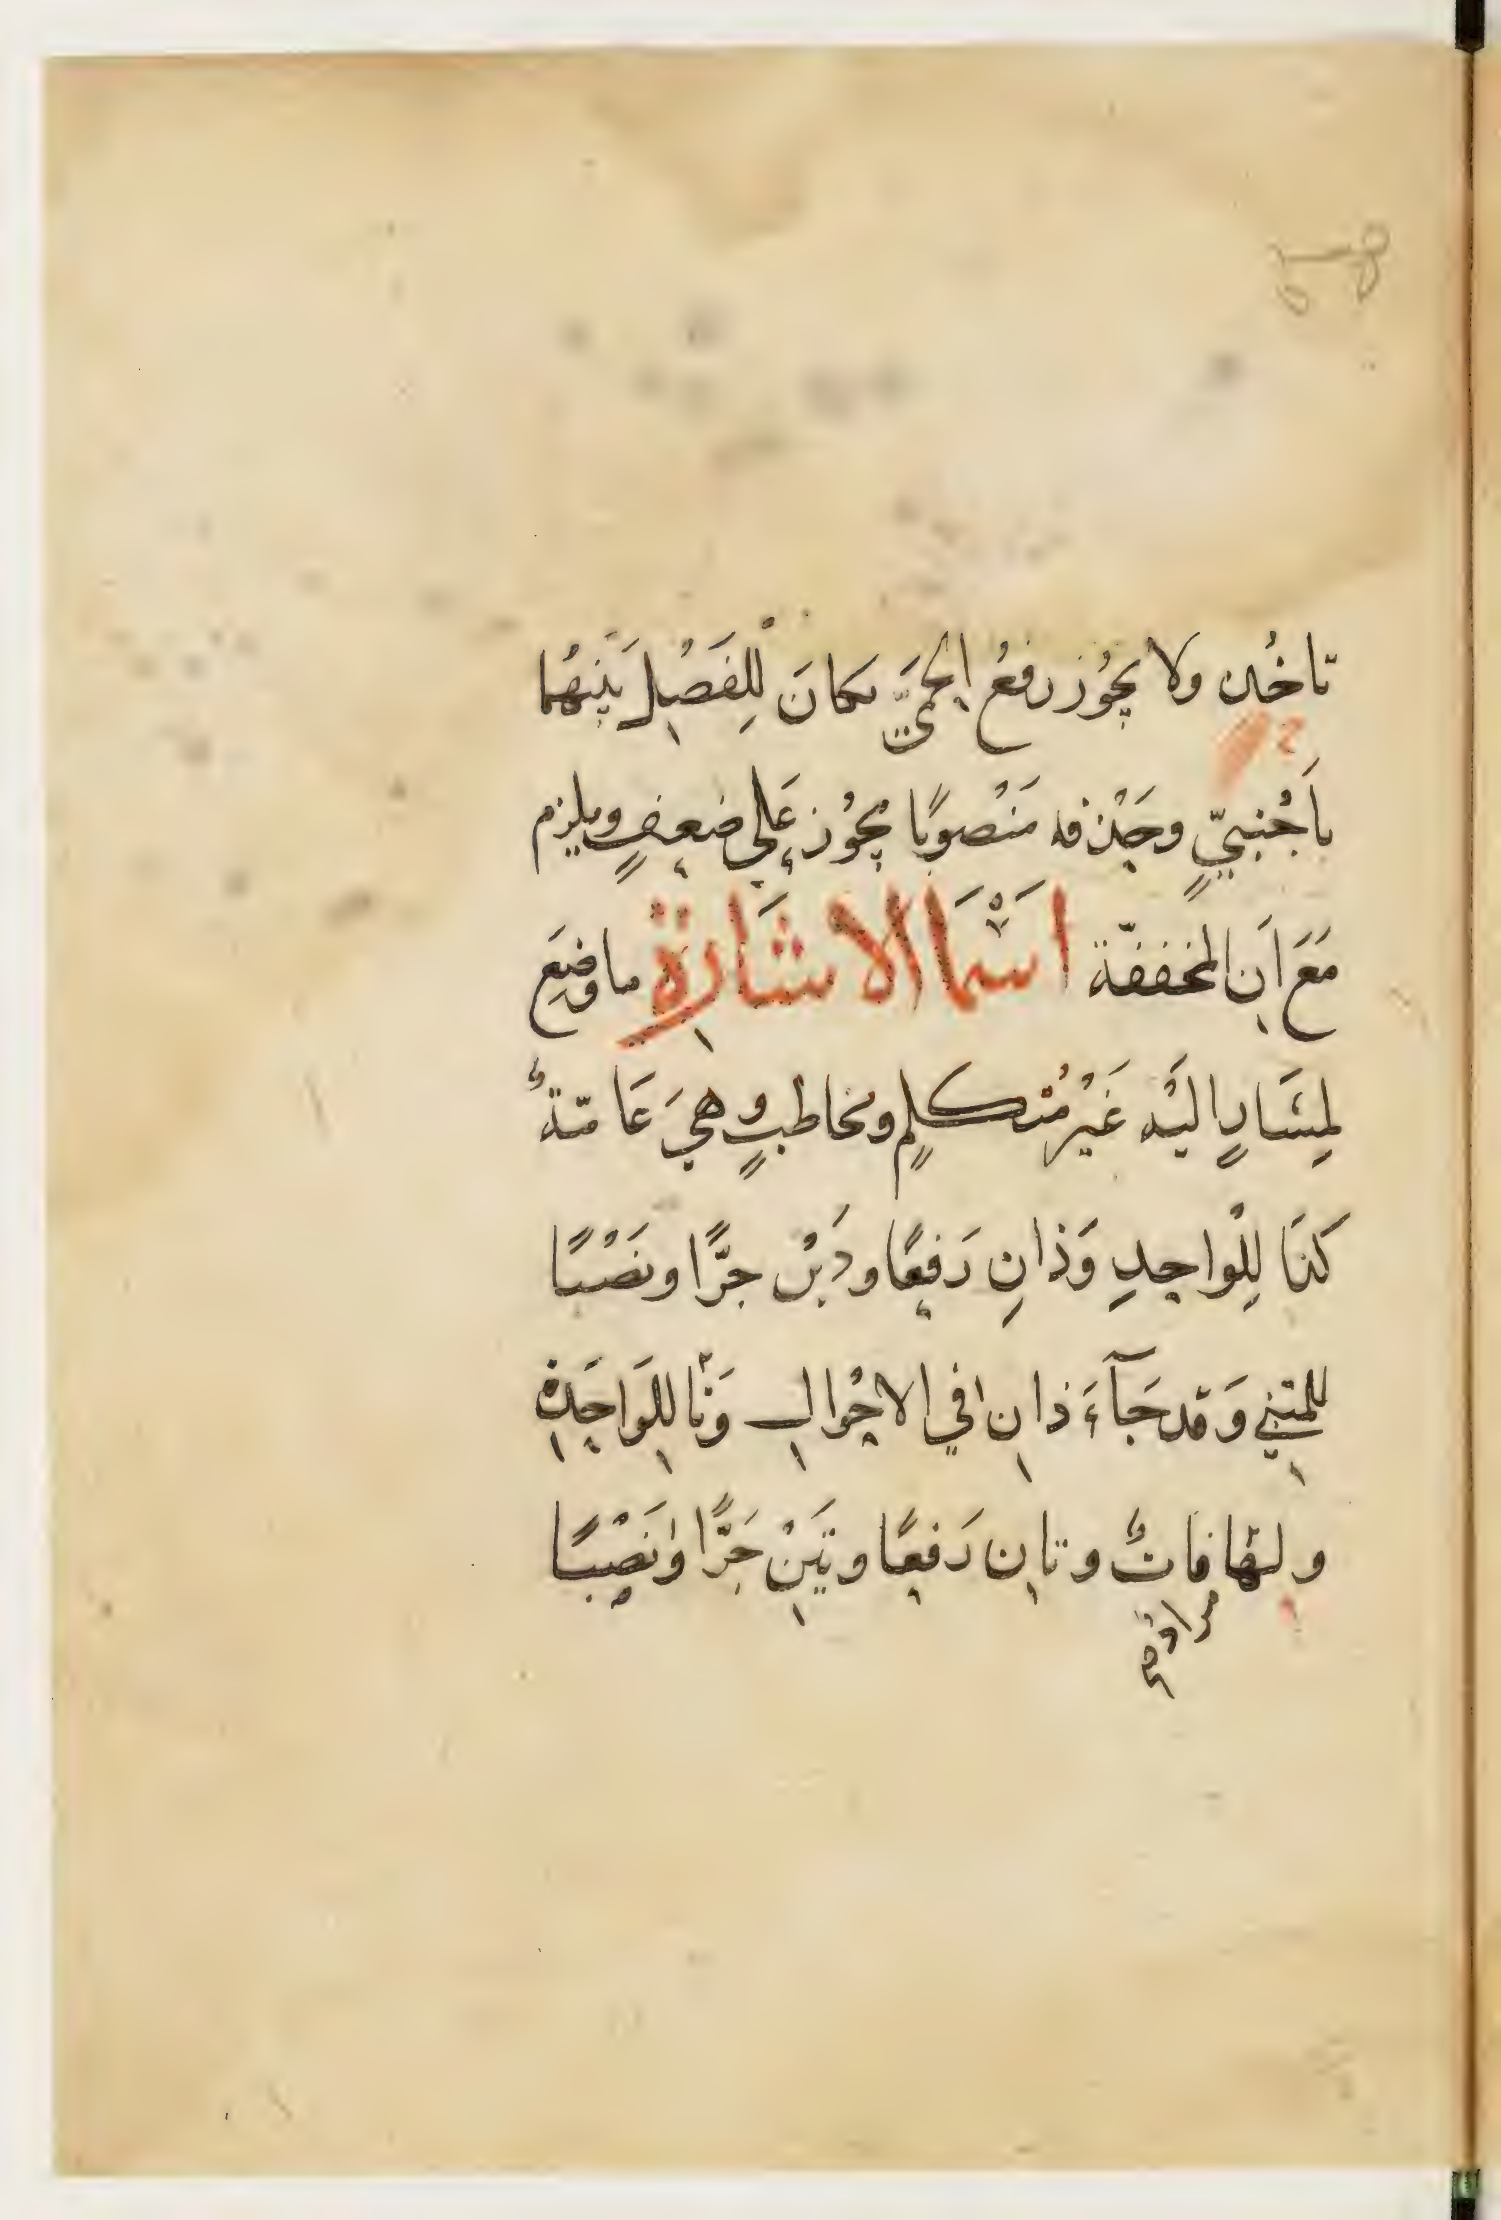 تاخُذ ولا يجُوز رفعُ الحمّيَ مكانَ لْلِفَصْلِ بَيْنِهُما
باَجْنبيٍّ وحَذْفه مَنْصوبًا يجُوْز عَلِي ضعِفٍ ويلزم
مَعَ اَنِ المخففّة اسْمَا الاشَارِة ما وضِعَ
لِمشَارٍ اليَْه غَيْرُ مُتكلمٍ ومخاطبٍ وهيَ عَامّةٌ
كذَا لِلْواحِدِ وَذانِ رَفعًا وذَيْن جرًّا ونَصْبًا
للمثنيِ وَقد جَآءَ ذانِ في الاحْوالِ وَتْا للِوَاحِدَةِ
ولهْا فاتٌ وتانِ رَفعًا وتَيَنِ جَرًّا ونَصْبًا